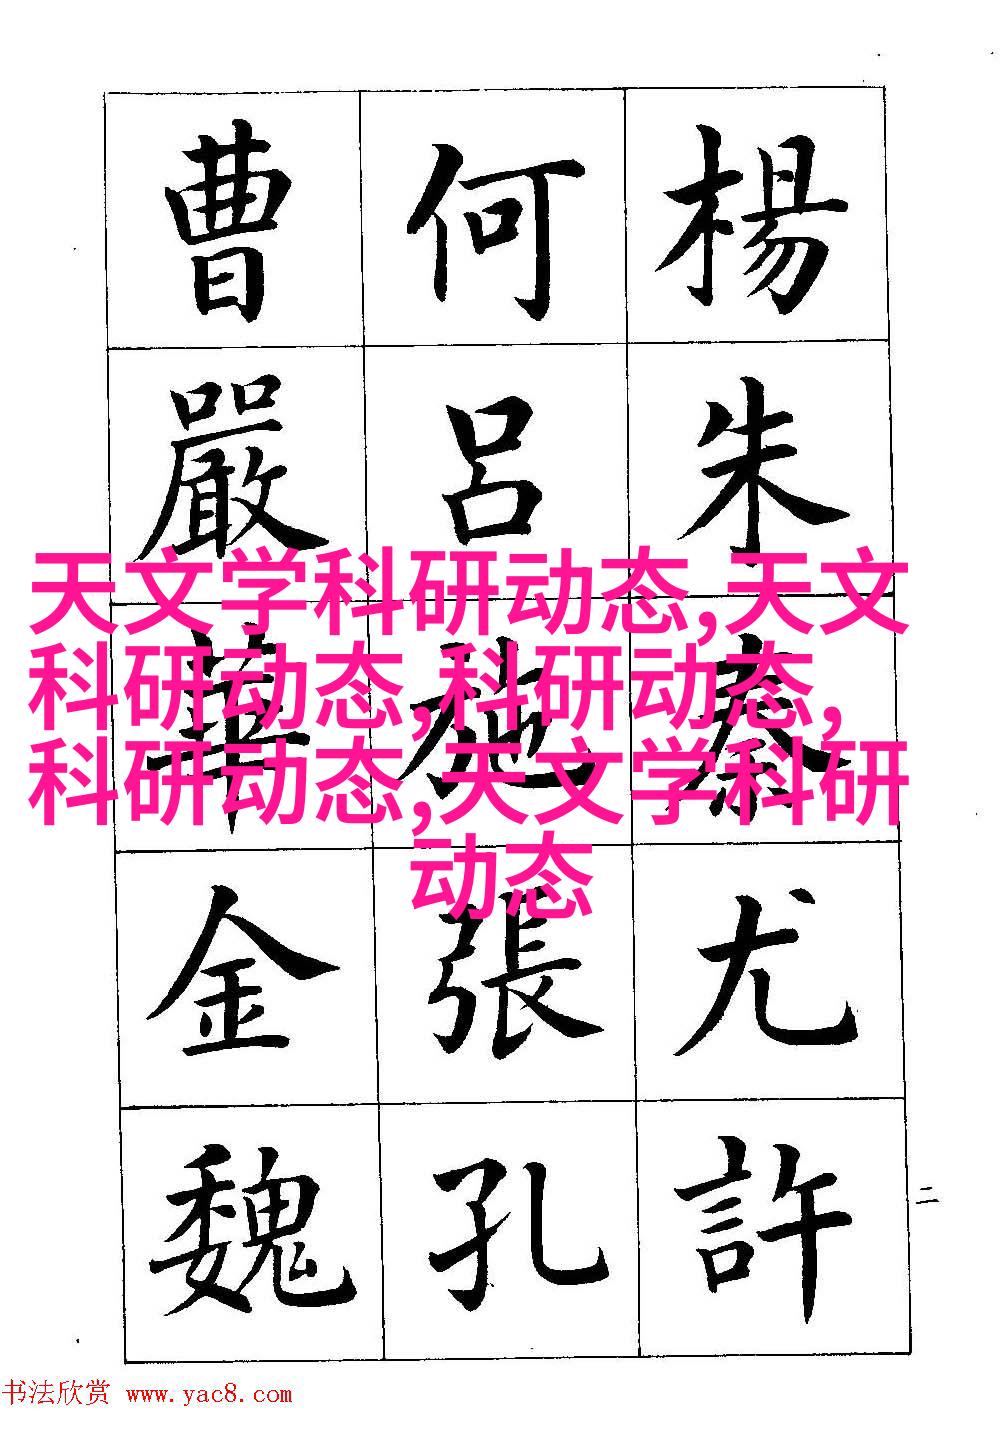 楊朱秦尤許
何呂施張孔
曹嚴華金魏
二
天文学科研动态,天文
科研动态,科研动态,
科研动态,天文学科研
动态
书法欣赏 www.yac8.com